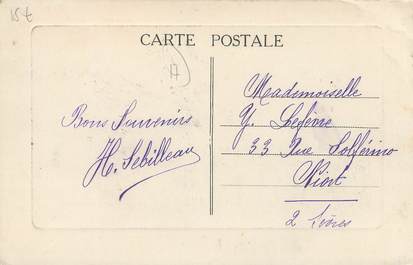 15 t
CARTE POSTALE
17
Bons Souvenirs
H. Sebilleau
Mademoiselle
Y. Lefèvre
33 Rue Solférino
Niort
2 Sèvres